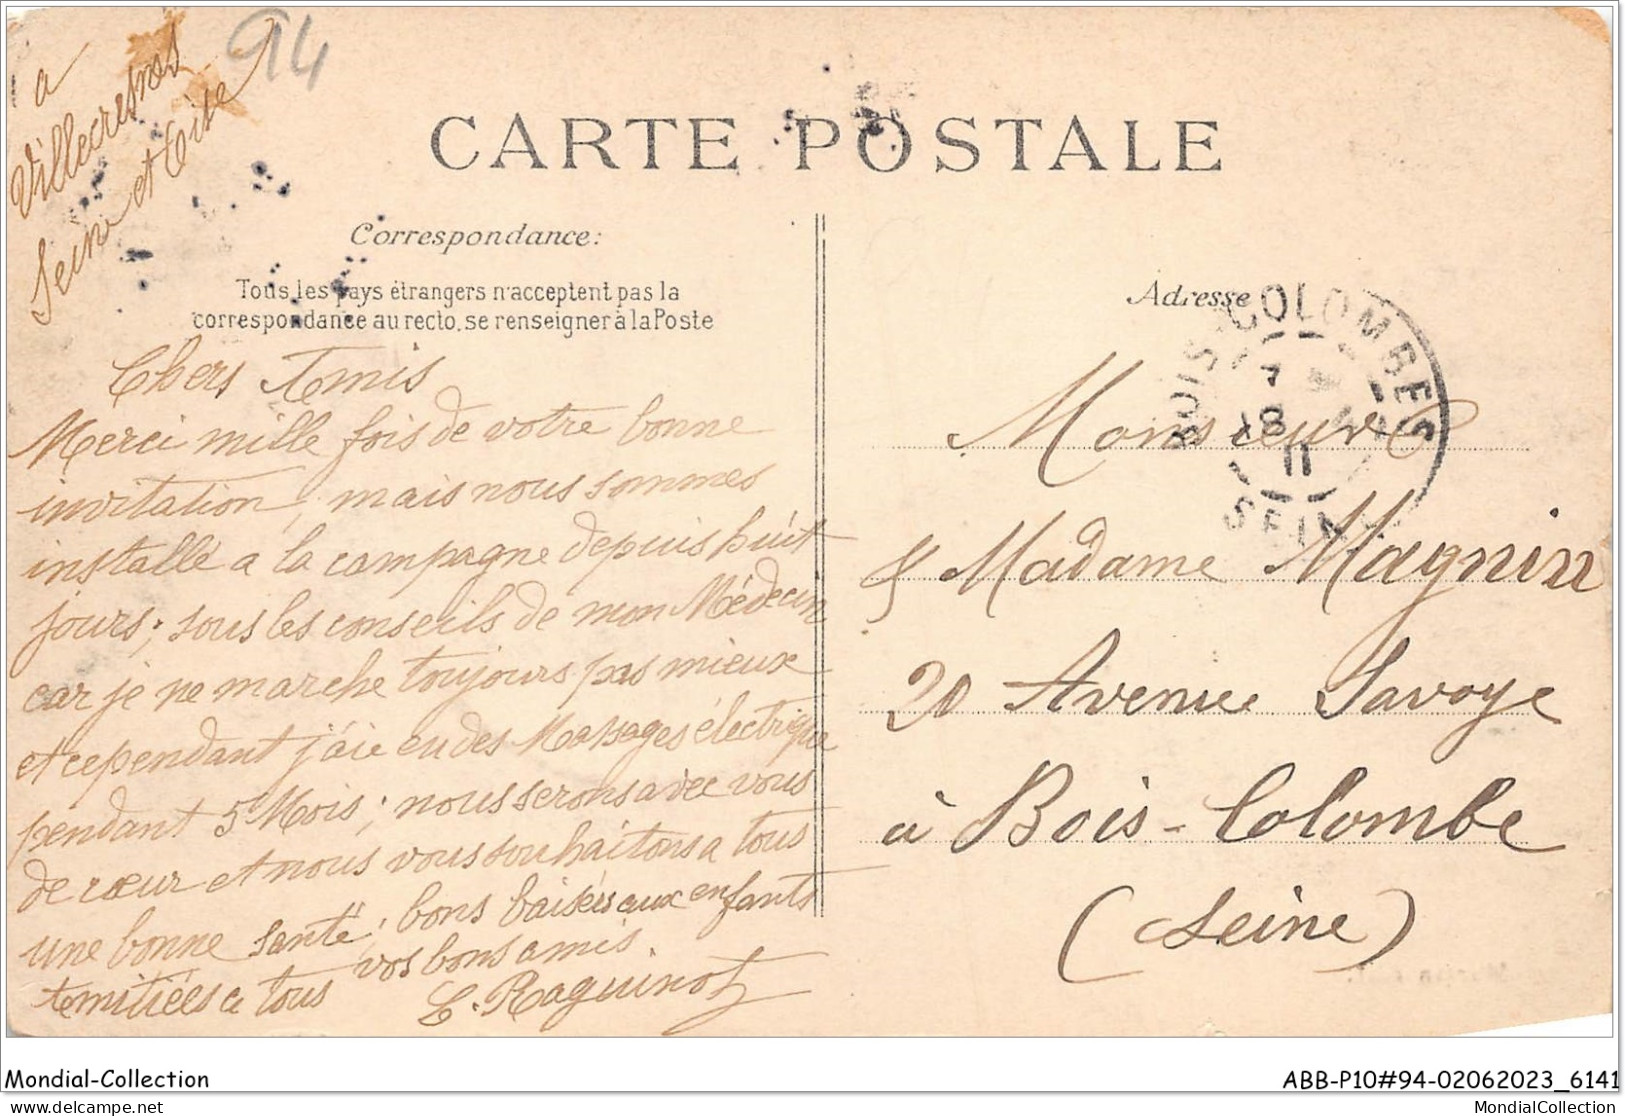 94
a
Villecresnes
Seine et Oise
CARTE POSTALE
Correspondance:
Tous les pays étrangers n'acceptent pas la
correspondance au recto, se renseigner à la Poste
Chers Amis
Merci mille fois de votre bonne
invitation, mais nous sommes
installé a la campagne depuis huit
jours; sous les conseils de mon Médecin
car je ne marche toujours pas mieux
et cependant j'aie eu des Massages électrique
pendant 5 Mois; nous serons avec vous
de cœur et nous vous souhaitons a tous
une bonne santé, bons baisés aux enfants
Amitiées a tous vos bons amis.
C. Raguinot
Adresse
BOIS-COLOMBES
7
18
11
SEINE
Monsieur
& Madame Magnin
20 Avenue Savoye
à Bois-Colombe
(Seine)
Mondial-Collection
ABB-P10#94-02062023_6141
MondialCollection